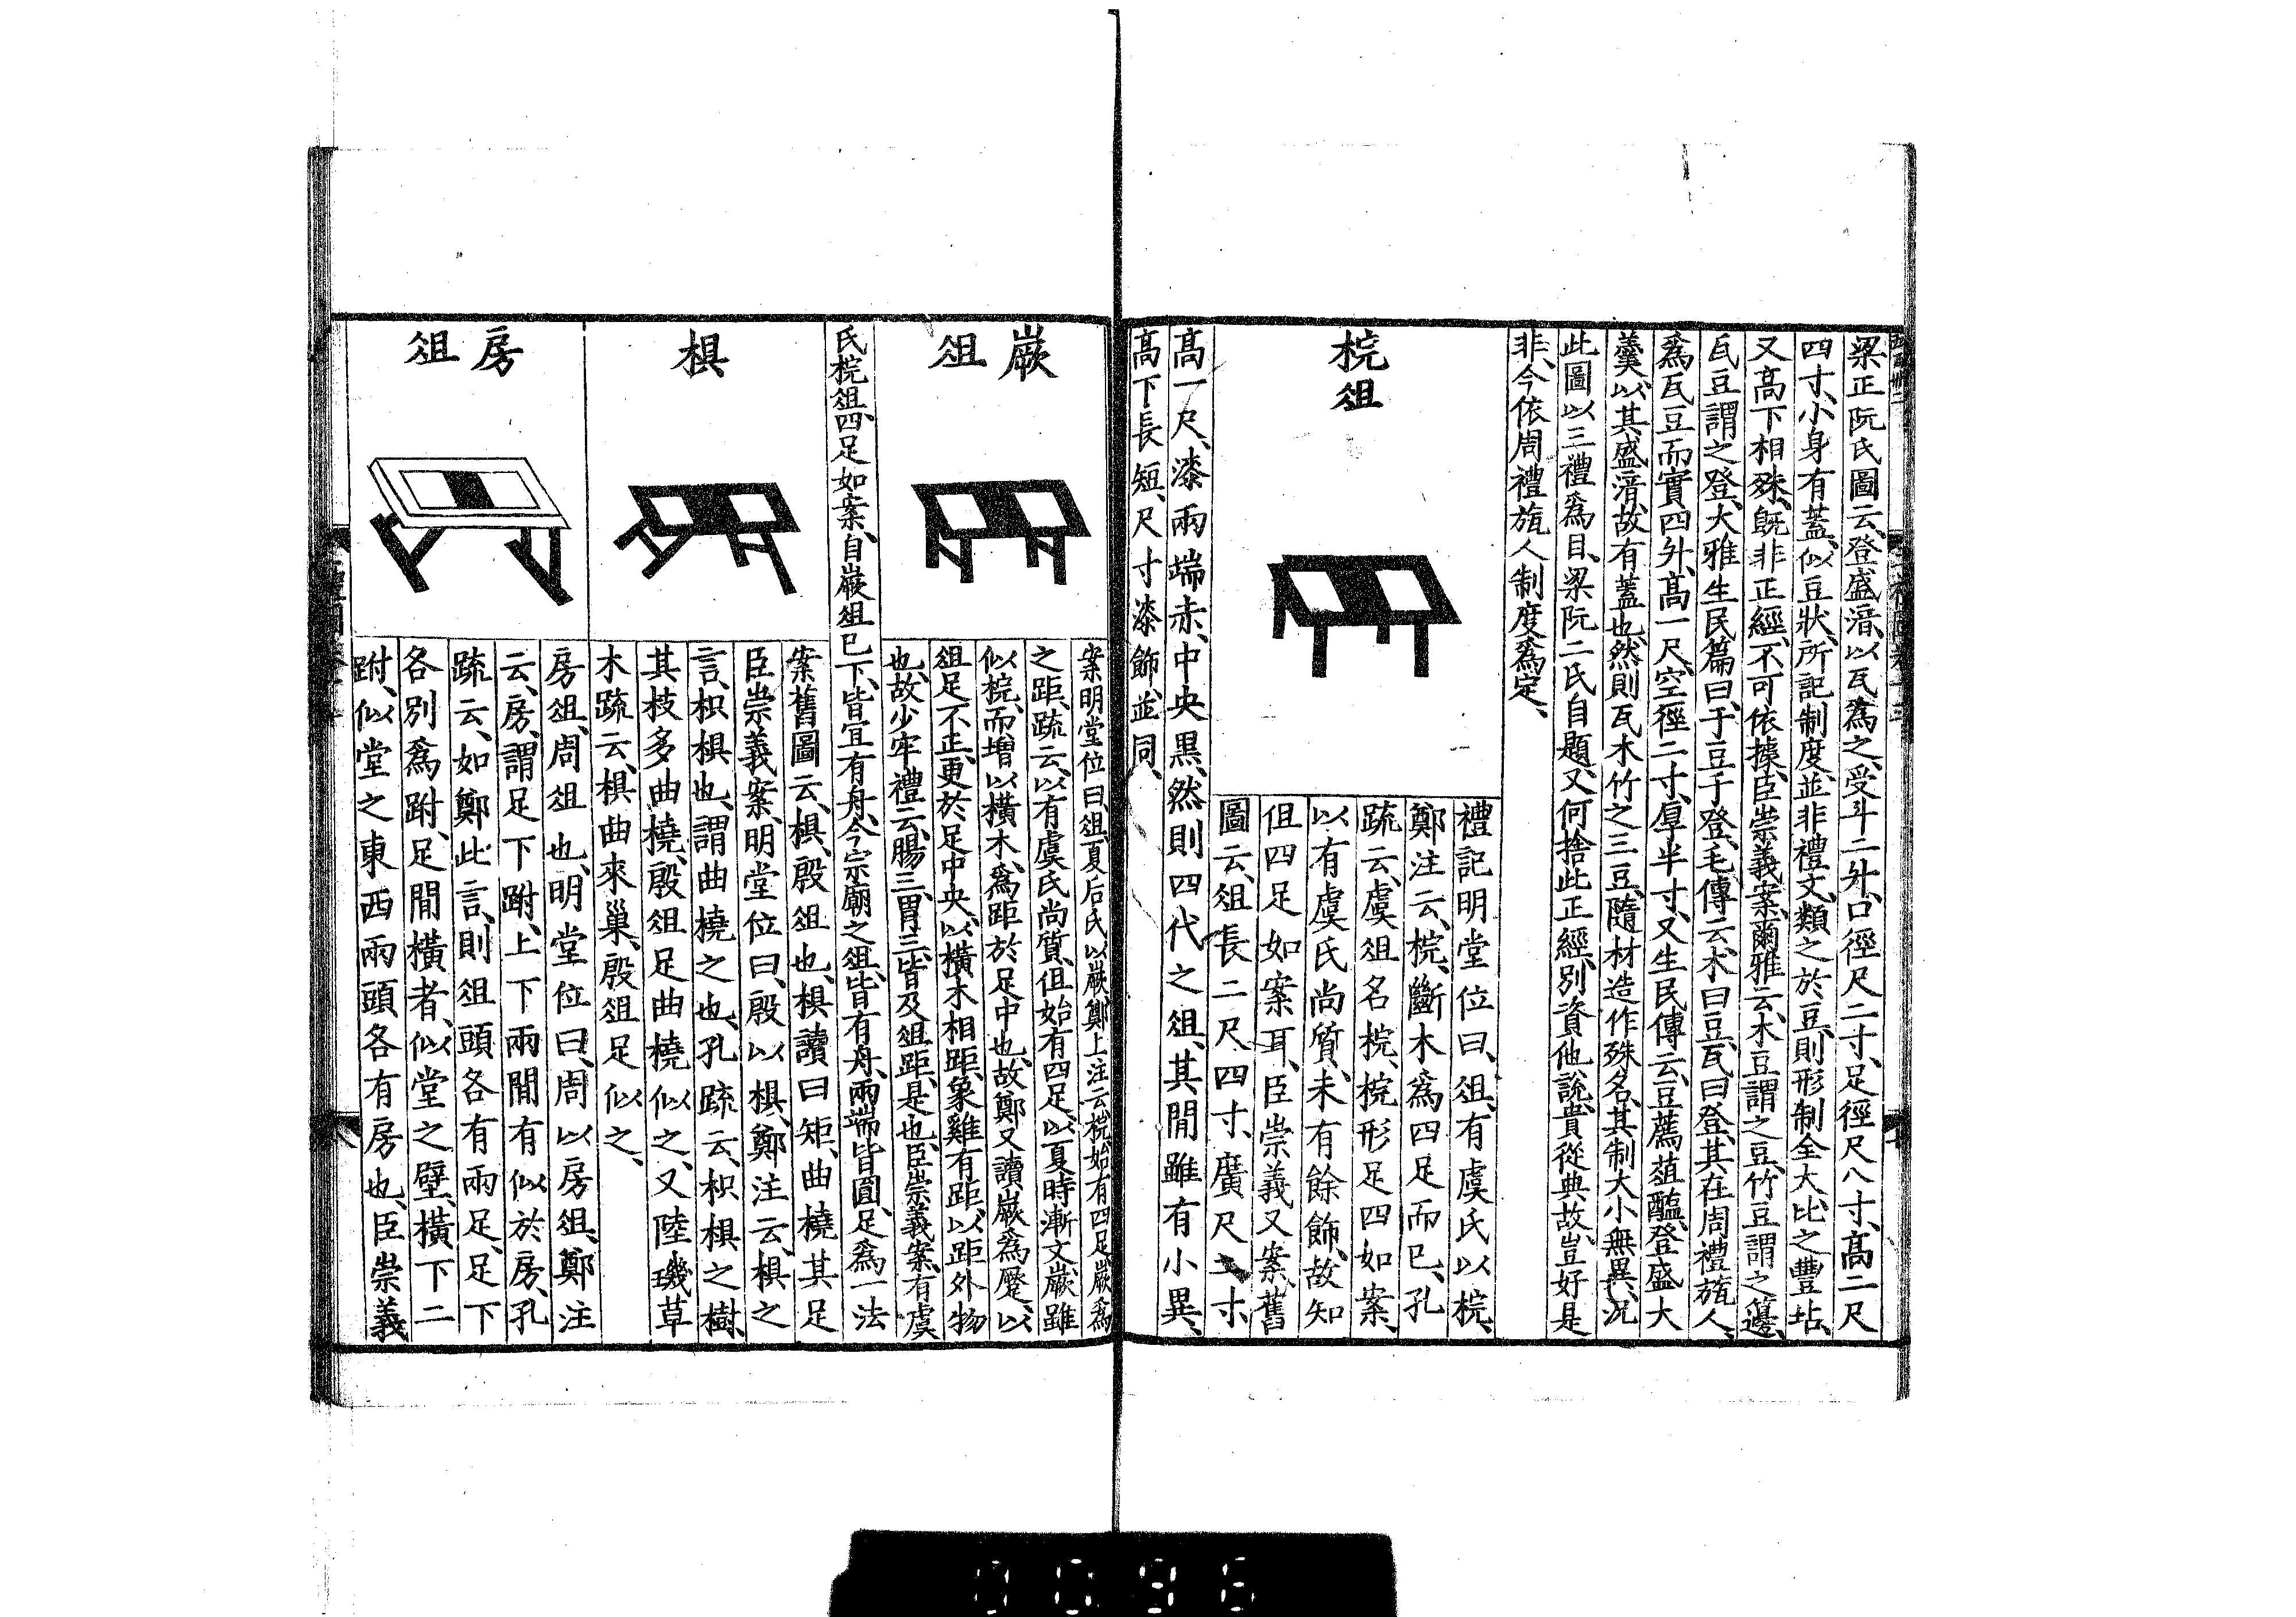 梁正阮氏圖云、登盛湆、以瓦爲之、受斗二升、口徑尺二寸、足徑尺八寸、高二尺
四寸、小身有蓋、似豆狀、所記制度、並非禮文、類之於豆、則形制全大、比之豐坫、
又高下相殊、既非正經、不可依據、臣崇義案、爾雅云、木豆謂之豆、竹豆謂之籩、
瓦豆謂之登、大雅生民篇曰、于豆于登、毛傳云、木曰豆、瓦曰登、其在周禮、旊人、
爲瓦豆而實四升、高一尺、空徑二寸、厚半寸、又生民傳云、豆薦菹醢、登盛大
羹、以其盛湆、故有蓋也、然則瓦木竹之三豆、隨材造作殊名、其制大小無異、況
此圖以三禮爲目、梁阮二氏自題、又何捨此正經、別資他說、貴從典故、豈好是
非、今依周禮旊人制度爲定、
梡俎
禮記明堂位曰、俎、有虞氏以梡、
鄭注云、梡、斷木爲四足而已、孔
疏云、虞俎名梡、梡形足四如案、
以有虞氏尚質、未有餘飾、故知
但四足如案耳、臣崇義又案、舊
圖云、俎長二尺四寸、廣尺二寸、
高一尺、漆兩端赤、中央黑、然則四代之俎、其間雖有小異、
高下長短、尺寸漆飾、並同、
嶡俎
案明堂位曰、俎、夏后氏以嶡、鄭上注云、梡、始有四足、嶡爲
之距、疏云、以有虞氏尚質、但始有四足、以夏時漸文、嶡雖
似梡、而增以橫木、爲距於足中也、故鄭又讀嶡爲蹷、以
俎足不正、更於足中央、以橫木相距、象雞有距、以距外物
也、故少牢禮云、腸三、胃三、皆及俎距、是也、臣崇義案、有虞
氏梡俎、四足如案、自嶡俎已下、皆宜有舟、今宗廟之俎、皆有舟、兩端皆圓、足爲一法
椇
案舊圖云、椇、殷俎也、椇讀曰矩、曲橈其足
臣崇義案、明堂位曰、殷以椇、鄭注云、椇之
言、枳椇也、謂曲橈之也、孔疏云、枳椇之樹、
其枝多曲橈、殷俎足曲橈似之、又陸璣草
木疏云、椇曲來巢、殷俎足似之、
房俎
房俎、周俎也、明堂位曰、周以房俎、鄭注
云、房、謂足下跗、上下兩間有似於房、孔
疏云、如鄭此言、則俎頭各有兩足、足下
各別爲跗、足間橫者、似堂之壁、橫下二
跗、似堂之東西兩頭各有房也、臣崇義